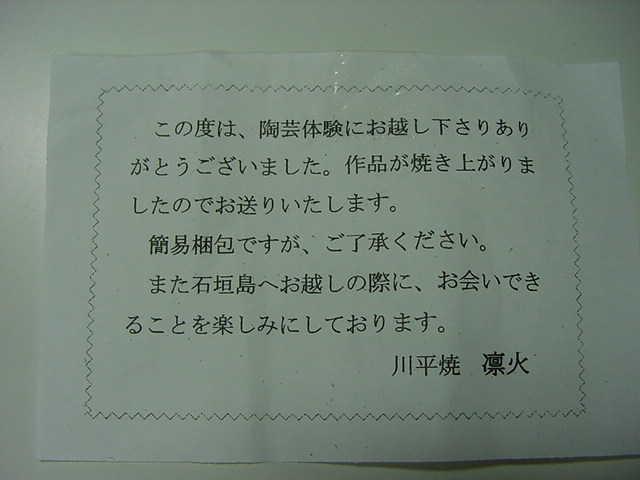 この度は、陶芸体験にお越し下さりあり
がとうございました。作品が焼き上がりま
したのでお送りいたします。
簡易梱包ですが、ご了承ください。
また石垣島へお越しの際に、お会いでき
ることを楽しみにしております。
川平焼 凛火